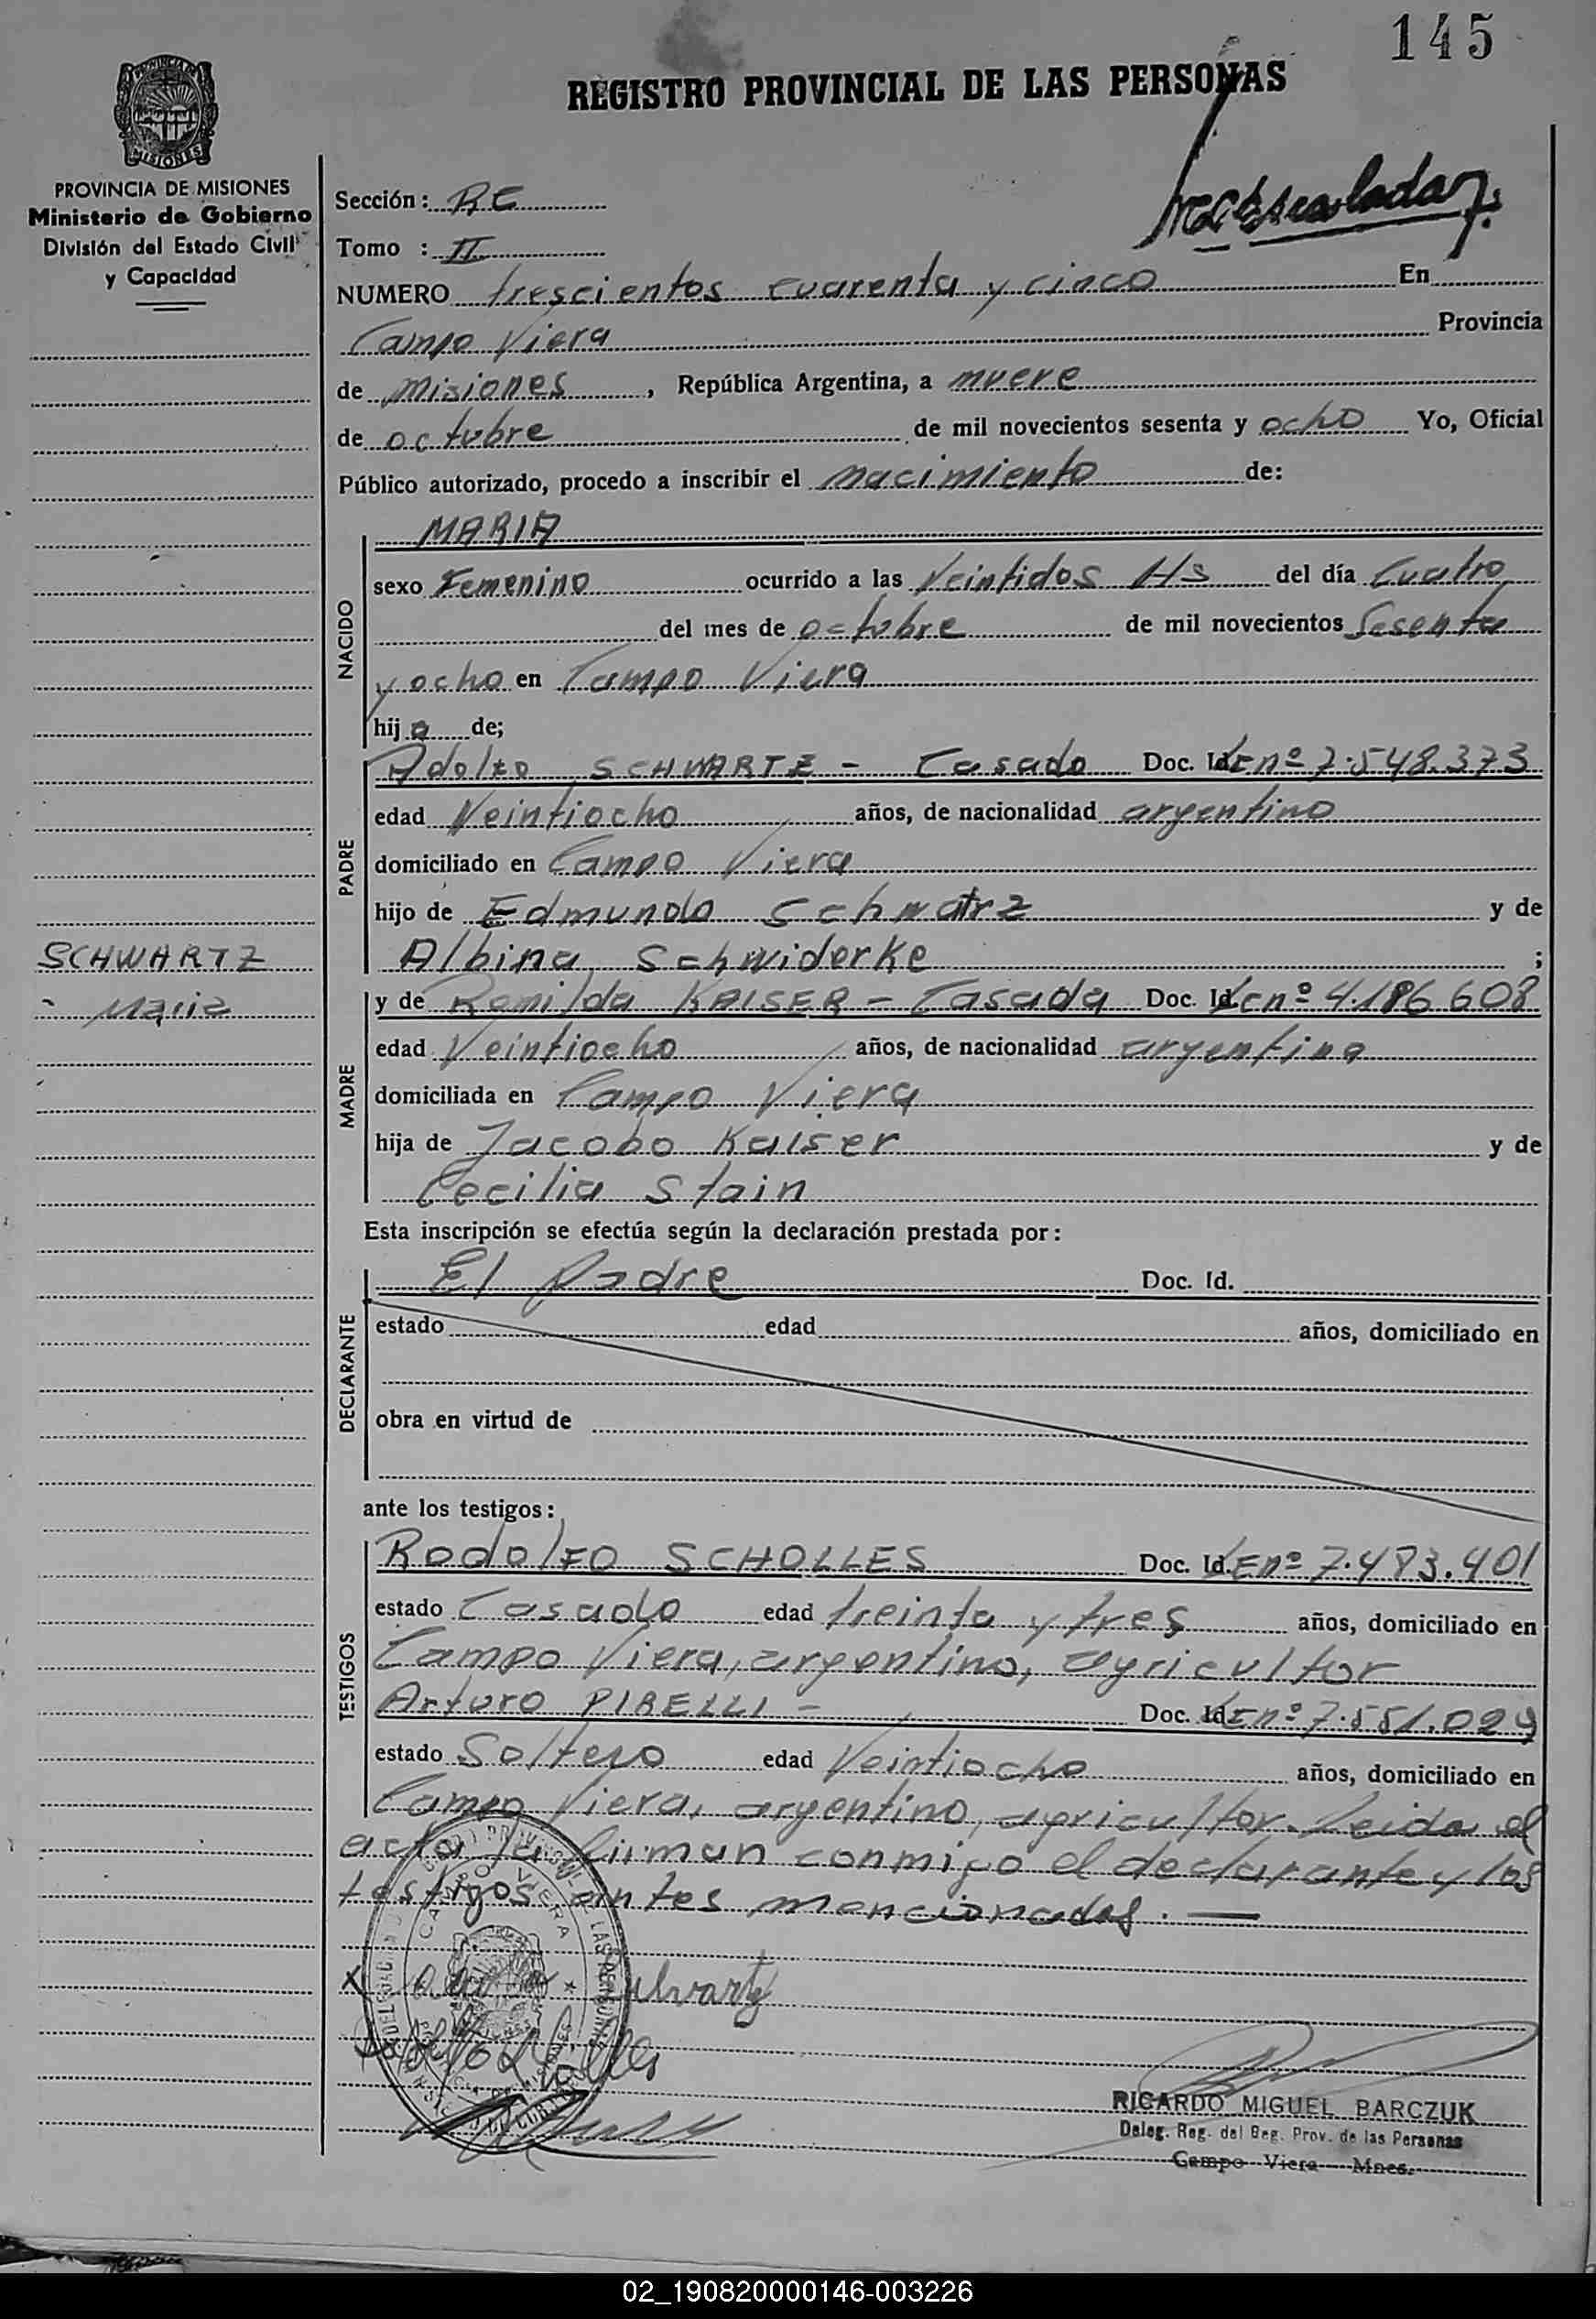 145
REGISTRO PROVINCIAL DE LAS PERSONAS
MISIONES
PROVINCIA DE MISIONES
Ministerio de Gobierno
División del Estado Civil
y Capacidad
Sección: RE
Tomo : II
NUMERO trescientos cuarenta y cinco En
Campo Viera Provincia
de Misiones, República Argentina, a nueve
de octubre de mil novecientos sesenta y ocho Yo, Oficial
Público autorizado, procedo a inscribir el nacimiento de:
NACIDO
MARIA
sexo Femenino ocurrido a las Veintidos Hs del día Cuatro
del mes de octubre de mil novecientos Sesenta
y ocho en Campo Viera
hija de;
PADRE
Adolfo SCHWARTZ - Casado Doc. Id. LE nº 7.548.373
edad Veintiocho años, de nacionalidad argentino
domiciliado en Campo Viera
hijo de Edmundo Schwatrz y de
Albina Schwiderke ;
SCHWARTZ
- Maria
MADRE
y de Romilda KAISER - Casada Doc. Id. LC nº 4.186.608
edad Veintiocho años, de nacionalidad argentina
domiciliada en Campo Viera
hija de Jacobo Kaiser y de
Cecilia Stain
Esta inscripción se efectúa según la declaración prestada por:
DECLARANTE
El Padre Doc. Id.
estado edad años, domiciliado en
obra en virtud de
ante los testigos:
TESTIGOS
Rodolfo SCHOLLES Doc. Id. LE nº 7.483.401
estado Casado edad treinta y tres años, domiciliado en
Campo Viera, argentino, agricultor
Arturo PIRELLI - Doc. Id. LE nº 7.551.029
estado Soltero edad Veintiocho años, domiciliado en
Campo Viera, argentino, agricultor. Leida el
acta la firman conmigo el declarante y los
testigos antes mencionados. —
CAMPO VIERA
RICARDO MIGUEL BARCZUK
Deleg. Reg. del Reg. Prov. de las Personas
Campo Viera Mnes.
02_190820000146-003226